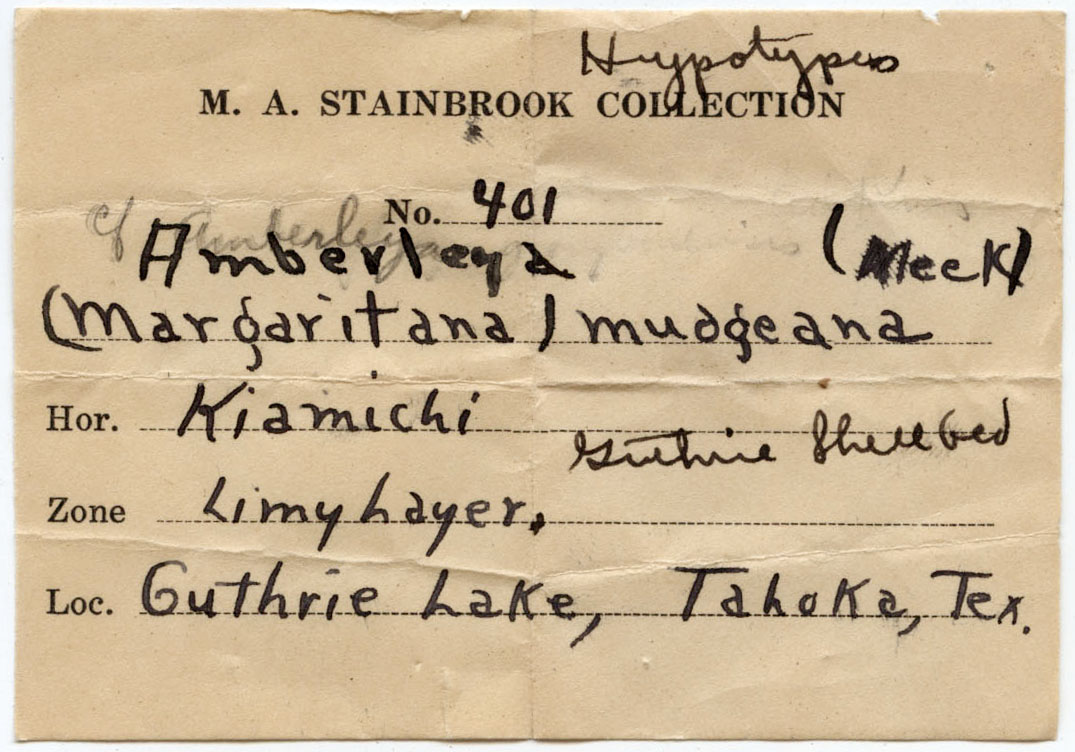 Hypotypes
M. A. STAINBROOK COLLECTION
No. 401
cf Amberleya
Amberleya (Meek)
(Margaritana) mudgeana
Hor. Kiamichi
Guthrie Shell bed
Zone Limy Layer.
Loc. Guthrie Lake, Tahoka, Tex.